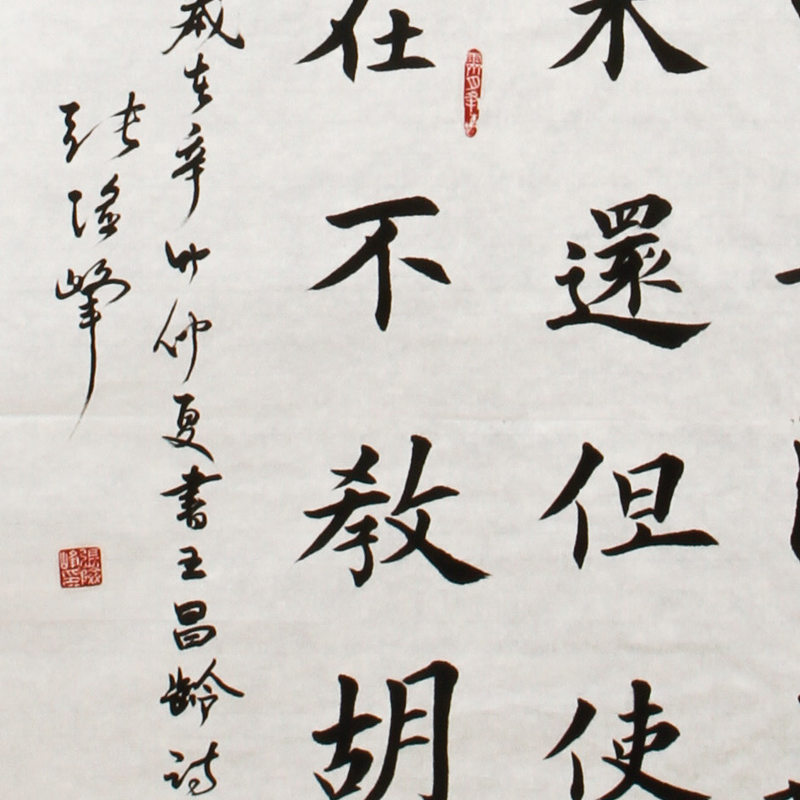 未還但使
在不教胡
歲在辛卯仲夏書王昌齡詩
張險峰